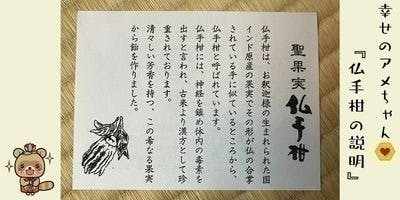 幸せのアメちゃん
『仏手柑の説明』
聖果実 仏手柑
仏手柑は、お釈迦様の生まれられた国
インド原産の果実でその形が仏の合掌
されている手に似ているところから、
仏手柑と呼ばれています。
仏手柑には、神経を鎮め体内の毒素を
出すと言われ、古来より漢方として珍
重されております。
清々しい芳香を持つ、この希なる果実
から飴を作りました。